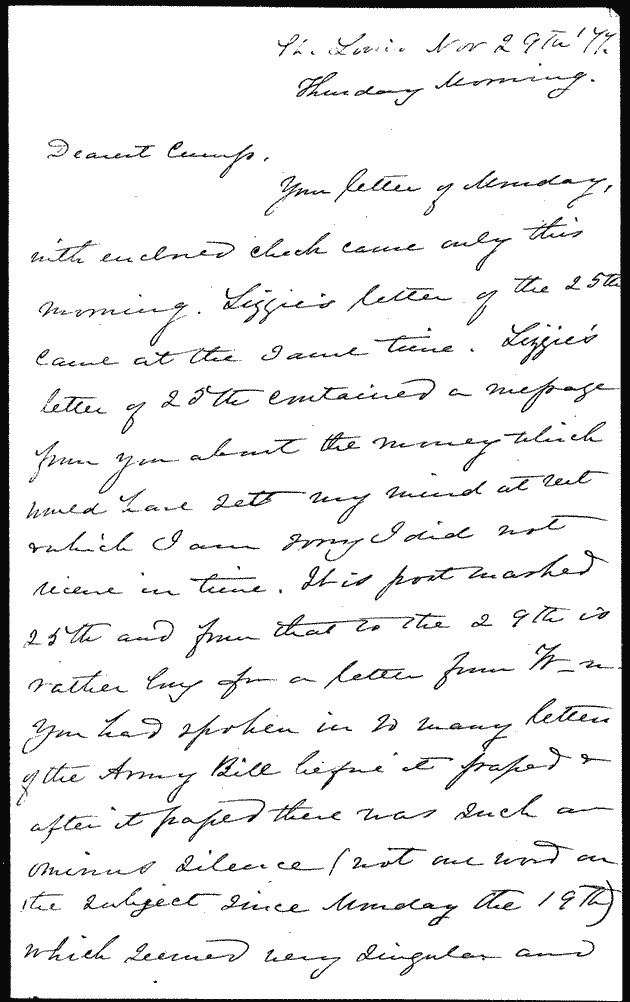 St. Louis Nov 29th '77.
Thursday Morning.
Dearest Cump,
Your letter of Monday,
with enclosed check came only this
morning. Lizzie's letter of the 25th
came at the same time. Lizzie's
letter of 25th contained a message
from you about the money which
would have sett my mind at rest
& which I am sorry I did not
recieve in time. It is post marked
25th and from that to the 29th is
rather long for a letter from W-n.
You had spoken in so many letters
of the Army Bill before it passed &
after it passed there was such an
ominus silence (not one word on
the subject since Monday the 19th)
which seemed very singular and